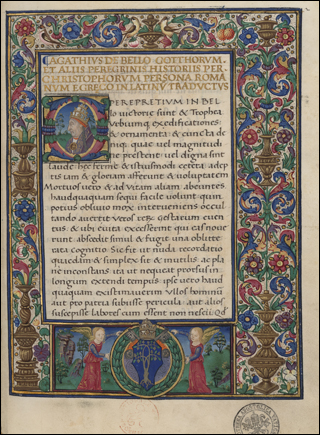 AGATHIUS DE BELLO GOTTHORUM
ET ALIIS PEREGRINIS HISTORIIS PER
CHRISTOPHORUM PERSONA ROMA
NUM E GRECO IN LATINU TRADUCTUS
PEREPRETIUM IN BEL
lo victorie sunt & Trophea
Urbiumq; exedificationes
& ornamenta: & cuncta de
niq; quae vel magnitudi
ne prestent: vel digna sint
laude: hec ferme & istiusmodi certa adep
tis tam & gloriam afferunt & voluptatem
Mortuos vero & ad Vitam aliam abeuntes
haudquaquam sequi facile volunt: quin
potius oblivio mox interveniens occul
tando avertit veros gestarum even
tus. & ubi evita excesserint qui eas noue
runt abscedit simul & fugit una oblitte
rata cognitio Sic fit ut nuda recordatio
quaedam & simplex sit & mutilis. ac pla
ne inconstans ita ut nequeat prorsus in
longum extendi tempus. ipse vero haud
quaquam existimaverim Ullos hominum
aut pro patria subiisse pericula aut alios
suscepisse labores cum essent non nescii